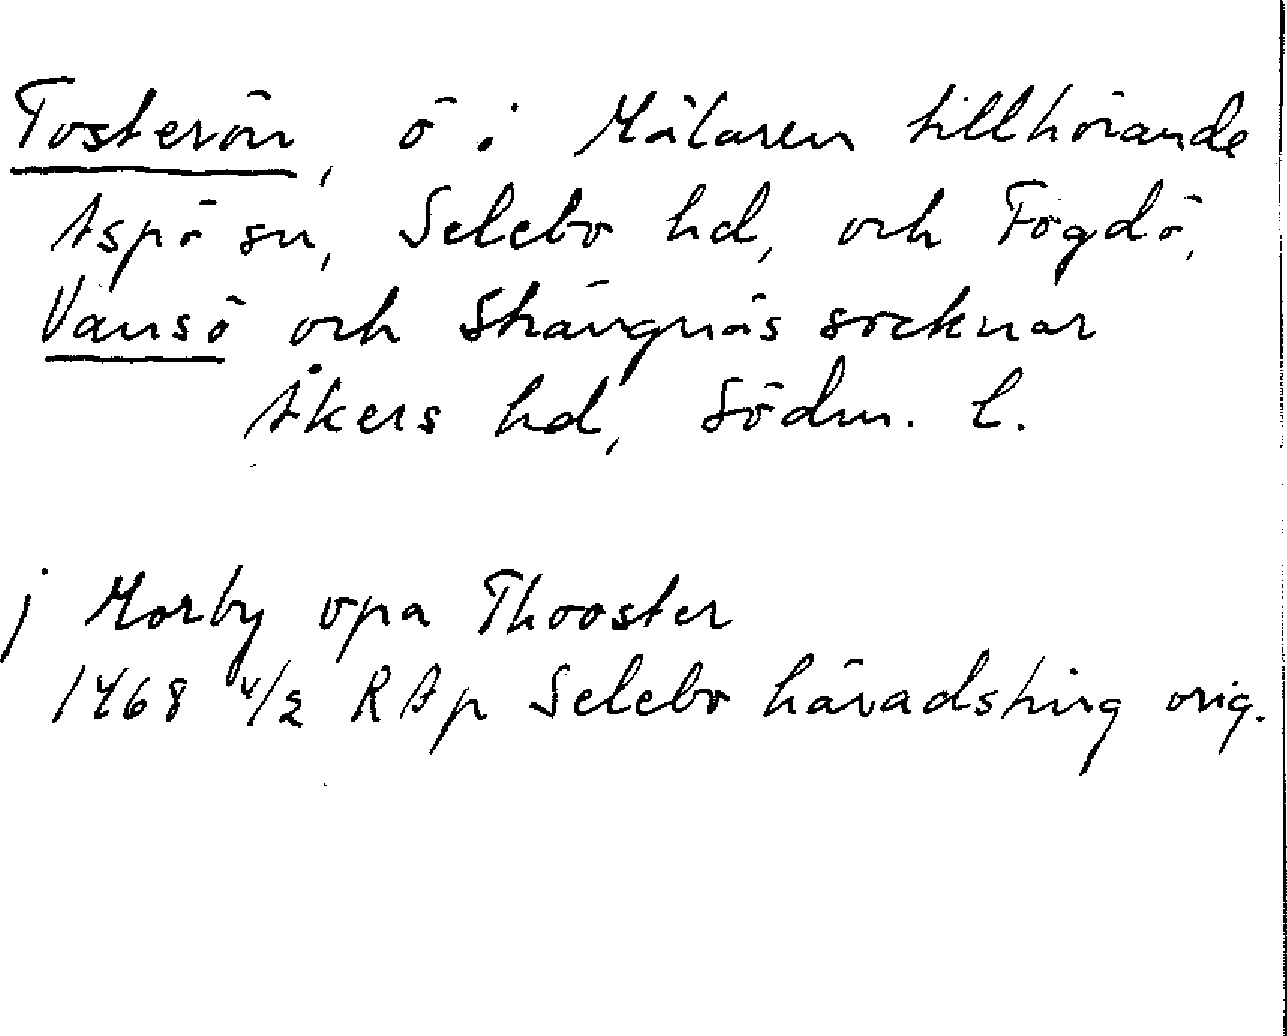 Tosterön, ö i Mälaren tillhörande
Aspö sn, Selebo hd, och Fogdö,
Vansö och Strängnäs socknar
Åkers hd, Södm. l.
j Morby vpa Thooster
1468 4/2 RAp Selebo häradsting orig.